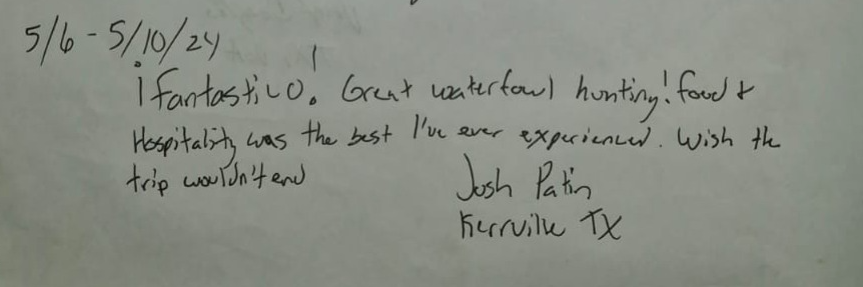 5/6 - 5/10/24
¡fantastico! Great waterfowl hunting! food &
Hospitality was the best I've ever experienced. Wish the
trip wouldn't end
Josh Patin
Kerrville TX